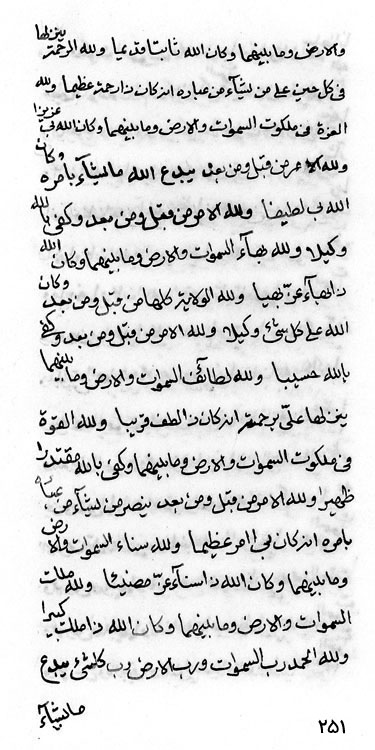 والارض وما بينهما وكان الله ثابتا قديما ولله الرحمة ينزلها
فى كل حين على من يشآء من عباده انه كان ذا رحمة عظيما ولله
العزة فى ملكوت السموات والارض وما بينهما وكان الله عزيزا
ولله الامر من قبل ومن بعد يبدع الله ما يشآء بامره وكان
الله لطيفا ولله الامر من قبل ومن بعد وكفى بالله
وكيلا ولله بهآء السموات والارض وما بينهما وكان الله
ذا بهآء عز بهيا ولله الولاية كلها من قبل ومن بعد وكان
الله على كل شئ وكيلا ولله الامر من قبل ومن بعد وكفى
بالله حسيبا ولله لطائف السموات والارض وما بينهما
ينزلها برحمته انه كان ذا لطف قريبا ولله القوة
فى ملكوت السموات والارض وما بينهما وكفى بالله مقتدرا
ظهيرا ولله الامر من قبل ومن بعد ينصر من يشآء من عباده
بامره انه كان امر عظيما ولله سناء السموات والارض
وما بينهما وكان الله ذا سنآء عز ولله ملك
السموات والارض وما بينهما وكان الله ذا ملك كبيرا
ولله الحمد رب السموات ورب الارض رب كلشئ يبدع
ما يشآء
٢٥١